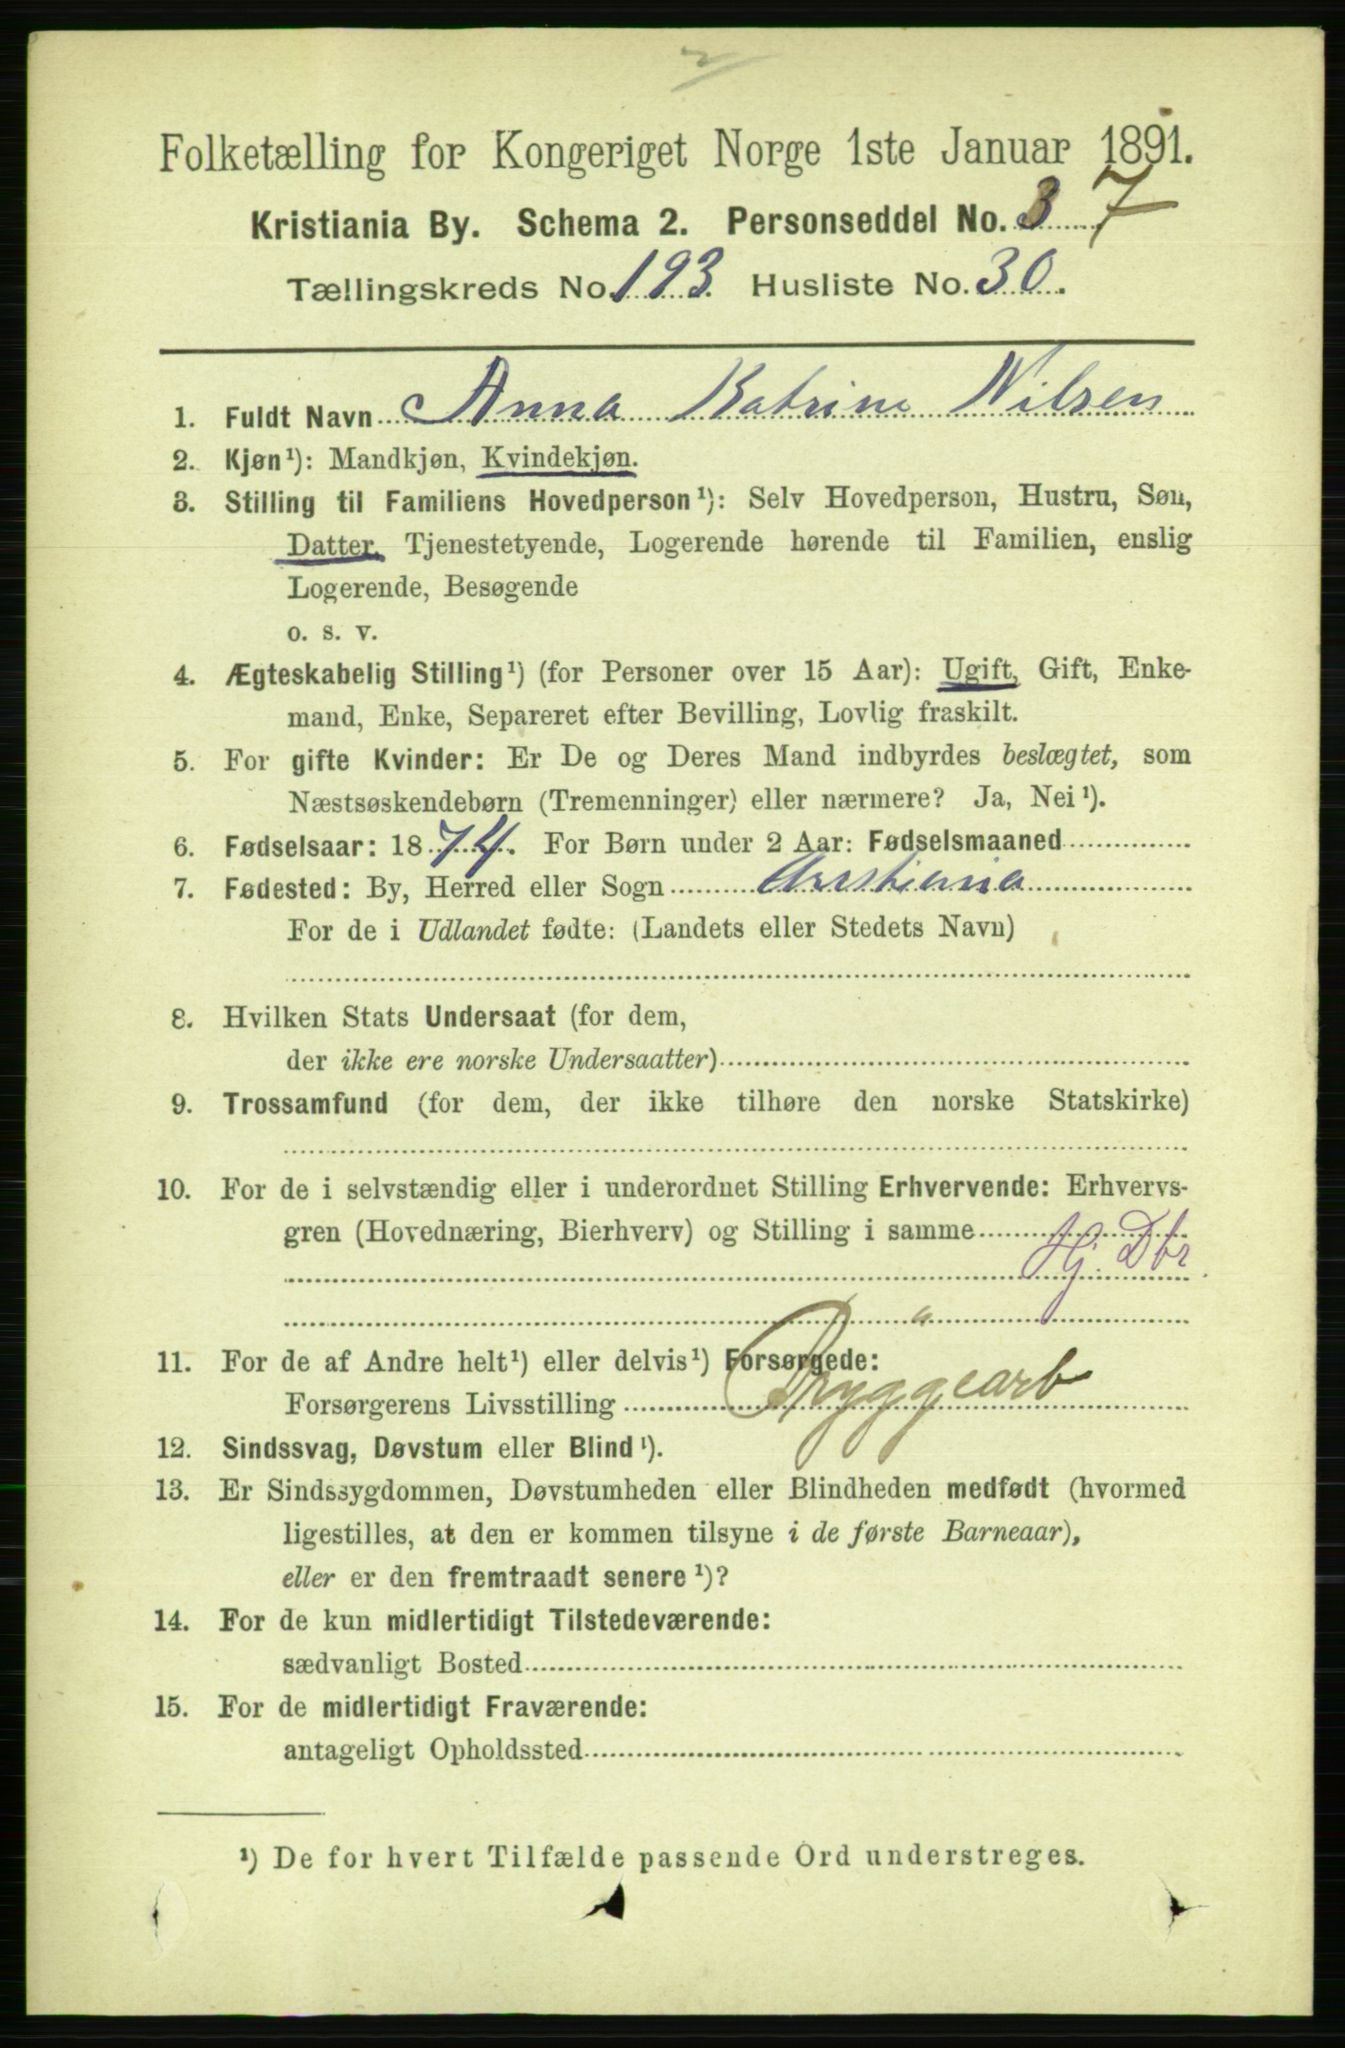 Folketælling for Kongeriget Norge 1ste Januar 1891.
Kristiania By. Schema 2. Personseddel No. 3 7
Tællingskreds No. 193. Husliste No. 30.
1. Fuldt Navn Anna Katrine Nilsen
2. Kjøn¹): Mandkjøn, Kvindekjøn.
3. Stilling til Familiens Hovedperson¹): Selv Hovedperson, Hustru, Søn,
Datter, Tjenestetyende, Logerende hørende til Familien, enslig
Logerende, Besøgende
o. s. v.
4. Ægteskabelig Stilling¹) (for Personer over 15 Aar): Ugift, Gift, Enke-
mand, Enke, Separeret efter Bevilling, Lovlig fraskilt.
5. For gifte Kvinder: Er De og Deres Mand indbyrdes beslægtet, som
Næstsøskendebørn (Tremenninger) eller nærmere? Ja, Nei¹).
6. Fødselsaar: 1874. For Børn under 2 Aar: Fødselsmaaned
7. Fødested: By, Herred eller Sogn Cristiania
For de i Udlandet fødte: (Landets eller Stedets Navn)
8. Hvilken Stats Undersaat (for dem,
der ikke ere norske Undersaatter)
9. Trossamfund (for dem, der ikke tilhøre den norske Statskirke)
10. For de i selvstændig eller i underordnet Stilling Erhvervende: Erhvervs-
gren (Hovednæring, Bierhverv) og Stilling i samme
Hj. Dtr.
"
11. For de af Andre helt¹) eller delvis¹) Forsørgede:
Forsørgerens Livsstilling Bryggearb
12. Sindssvag, Døvstum eller Blind¹).
13. Er Sindssygdommen, Døvstumheden eller Blindheden medfødt (hvormed
ligestilles, at den er kommen tilsyne i de første Barneaar),
eller er den fremtraadt senere¹)?
14. For de kun midlertidigt Tilstedeværende:
sædvanligt Bosted
15. For de midlertidigt Fraværende:
antageligt Opholdssted
¹) De for hvert Tilfælde passende Ord understreges.